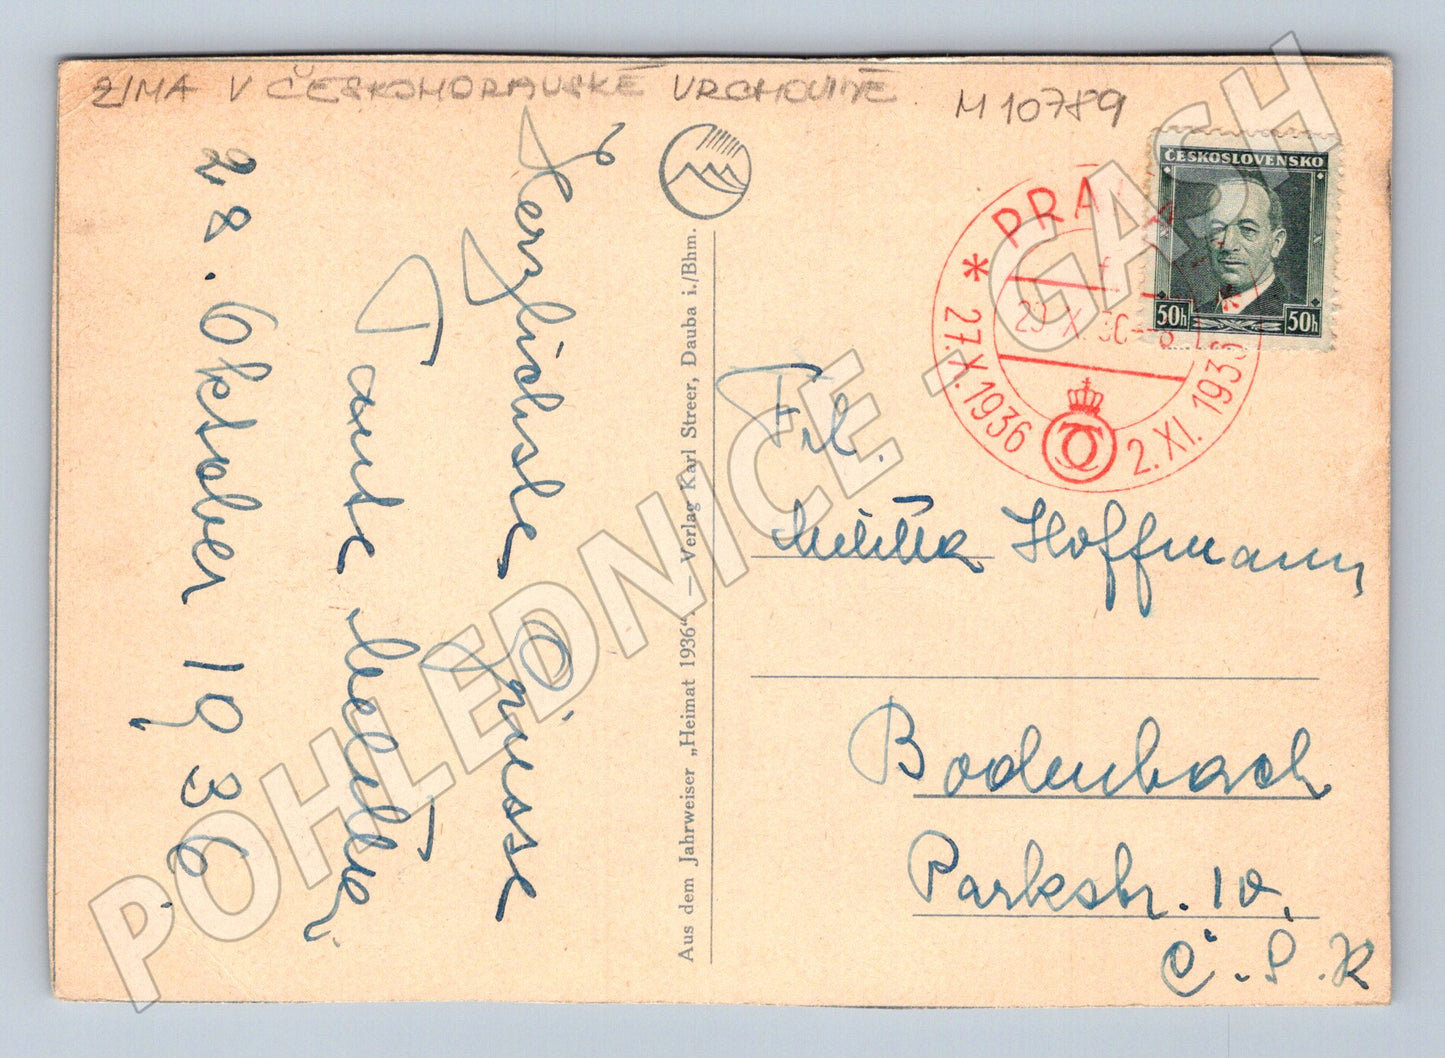 ZIMA V ČESKOMORAVSKÉ VRCHOVINĚ
M 10789
Herzlichste Grüsse
Tante
28. Oktober 1936
Aus dem Jahrweiser „Heimat 1936“. — Verlag Karl Streer, Dauba i./Bhm.
ČESKOSLOVENSKO
50h 50h
* PRAHA *
X. 36-8
27.X.1936
2.XI.1936
Frl.
Hoffmann
Bodenbach
Parkstr. 10.
Č.S.R
POHLEDNICE - GASH